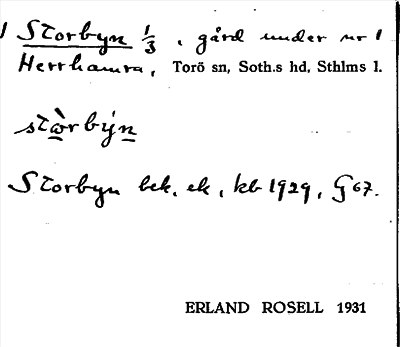 1 Storbyn 1/3, gård under nr 1
Herrhamra, Torö sn, Soth.s hd, Sthlms l.
stòrbýn
Storbyn bek. ek., kb 1929, G 67.
ERLAND ROSELL 1931